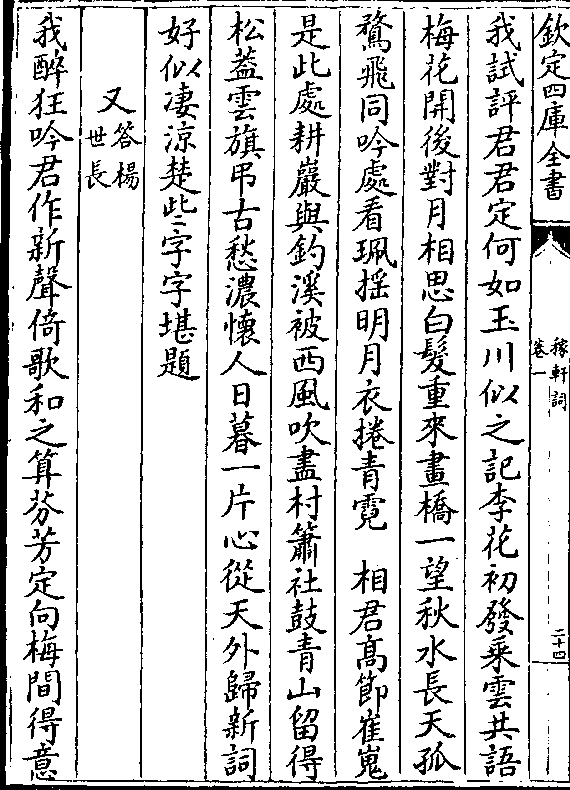 欽定四庫全書
稼軒詞
卷一
二十四
我試評君君定何如玉川似之記李花初發乘雲共語
梅花開後對月相思白髮重來畫橋一望秋水長天孤
鶩飛同吟處看珮摇明月衣捲青霓　相君髙節崔嵬
是此處耕巖與釣溪被西風吹盡村簫社鼓青山留得
松葢雲旗弔古愁濃懷人日暮一片心從天外歸新詞
好似凄涼楚些字字堪題
又答楊世長
我醉狂吟君作新聲倚歌和之算芬芳定向梅間得意